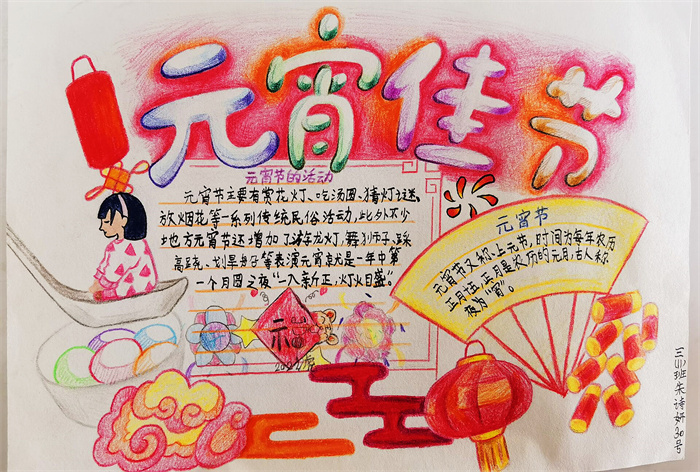 元宵佳节
元宵节的活动
元宵节主要有赏花灯、吃汤圆、猜灯谜、
放烟花等一系列传统民俗活动,此外不少
地方元宵节还增加了游龙灯,舞狮子、踩
高跷、划旱船子等表演元宵节是一年中第
一个月圆之夜"一入新正,灯火日盛"。
元宵节
元宵节又称上元节,时间为每年农历
正月十五,正月是农历的元月,古人称
夜为"宵"。
三(1)班朱诗妍30号